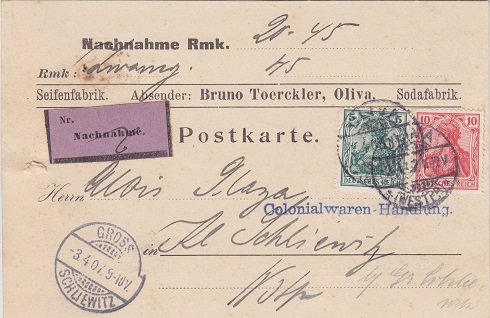 Nachnahme Rmk. 20.45
Rmk: Zwanzig 45
Seifenfabrik. Absender: Bruno Toerckler, Oliva. Sodafabrik.
Nr.
Nachnahme.
6
Postkarte.
5 5
10 10
DEUTSCHES REICH
OLIVA
(WESTPR.)
Herrn Alois Plaza
Colonialwaren-Handlung.
in Kl Schliewitz
GROSS
-3.4.07.9-10V.
SCHLIEWITZ
Wstp